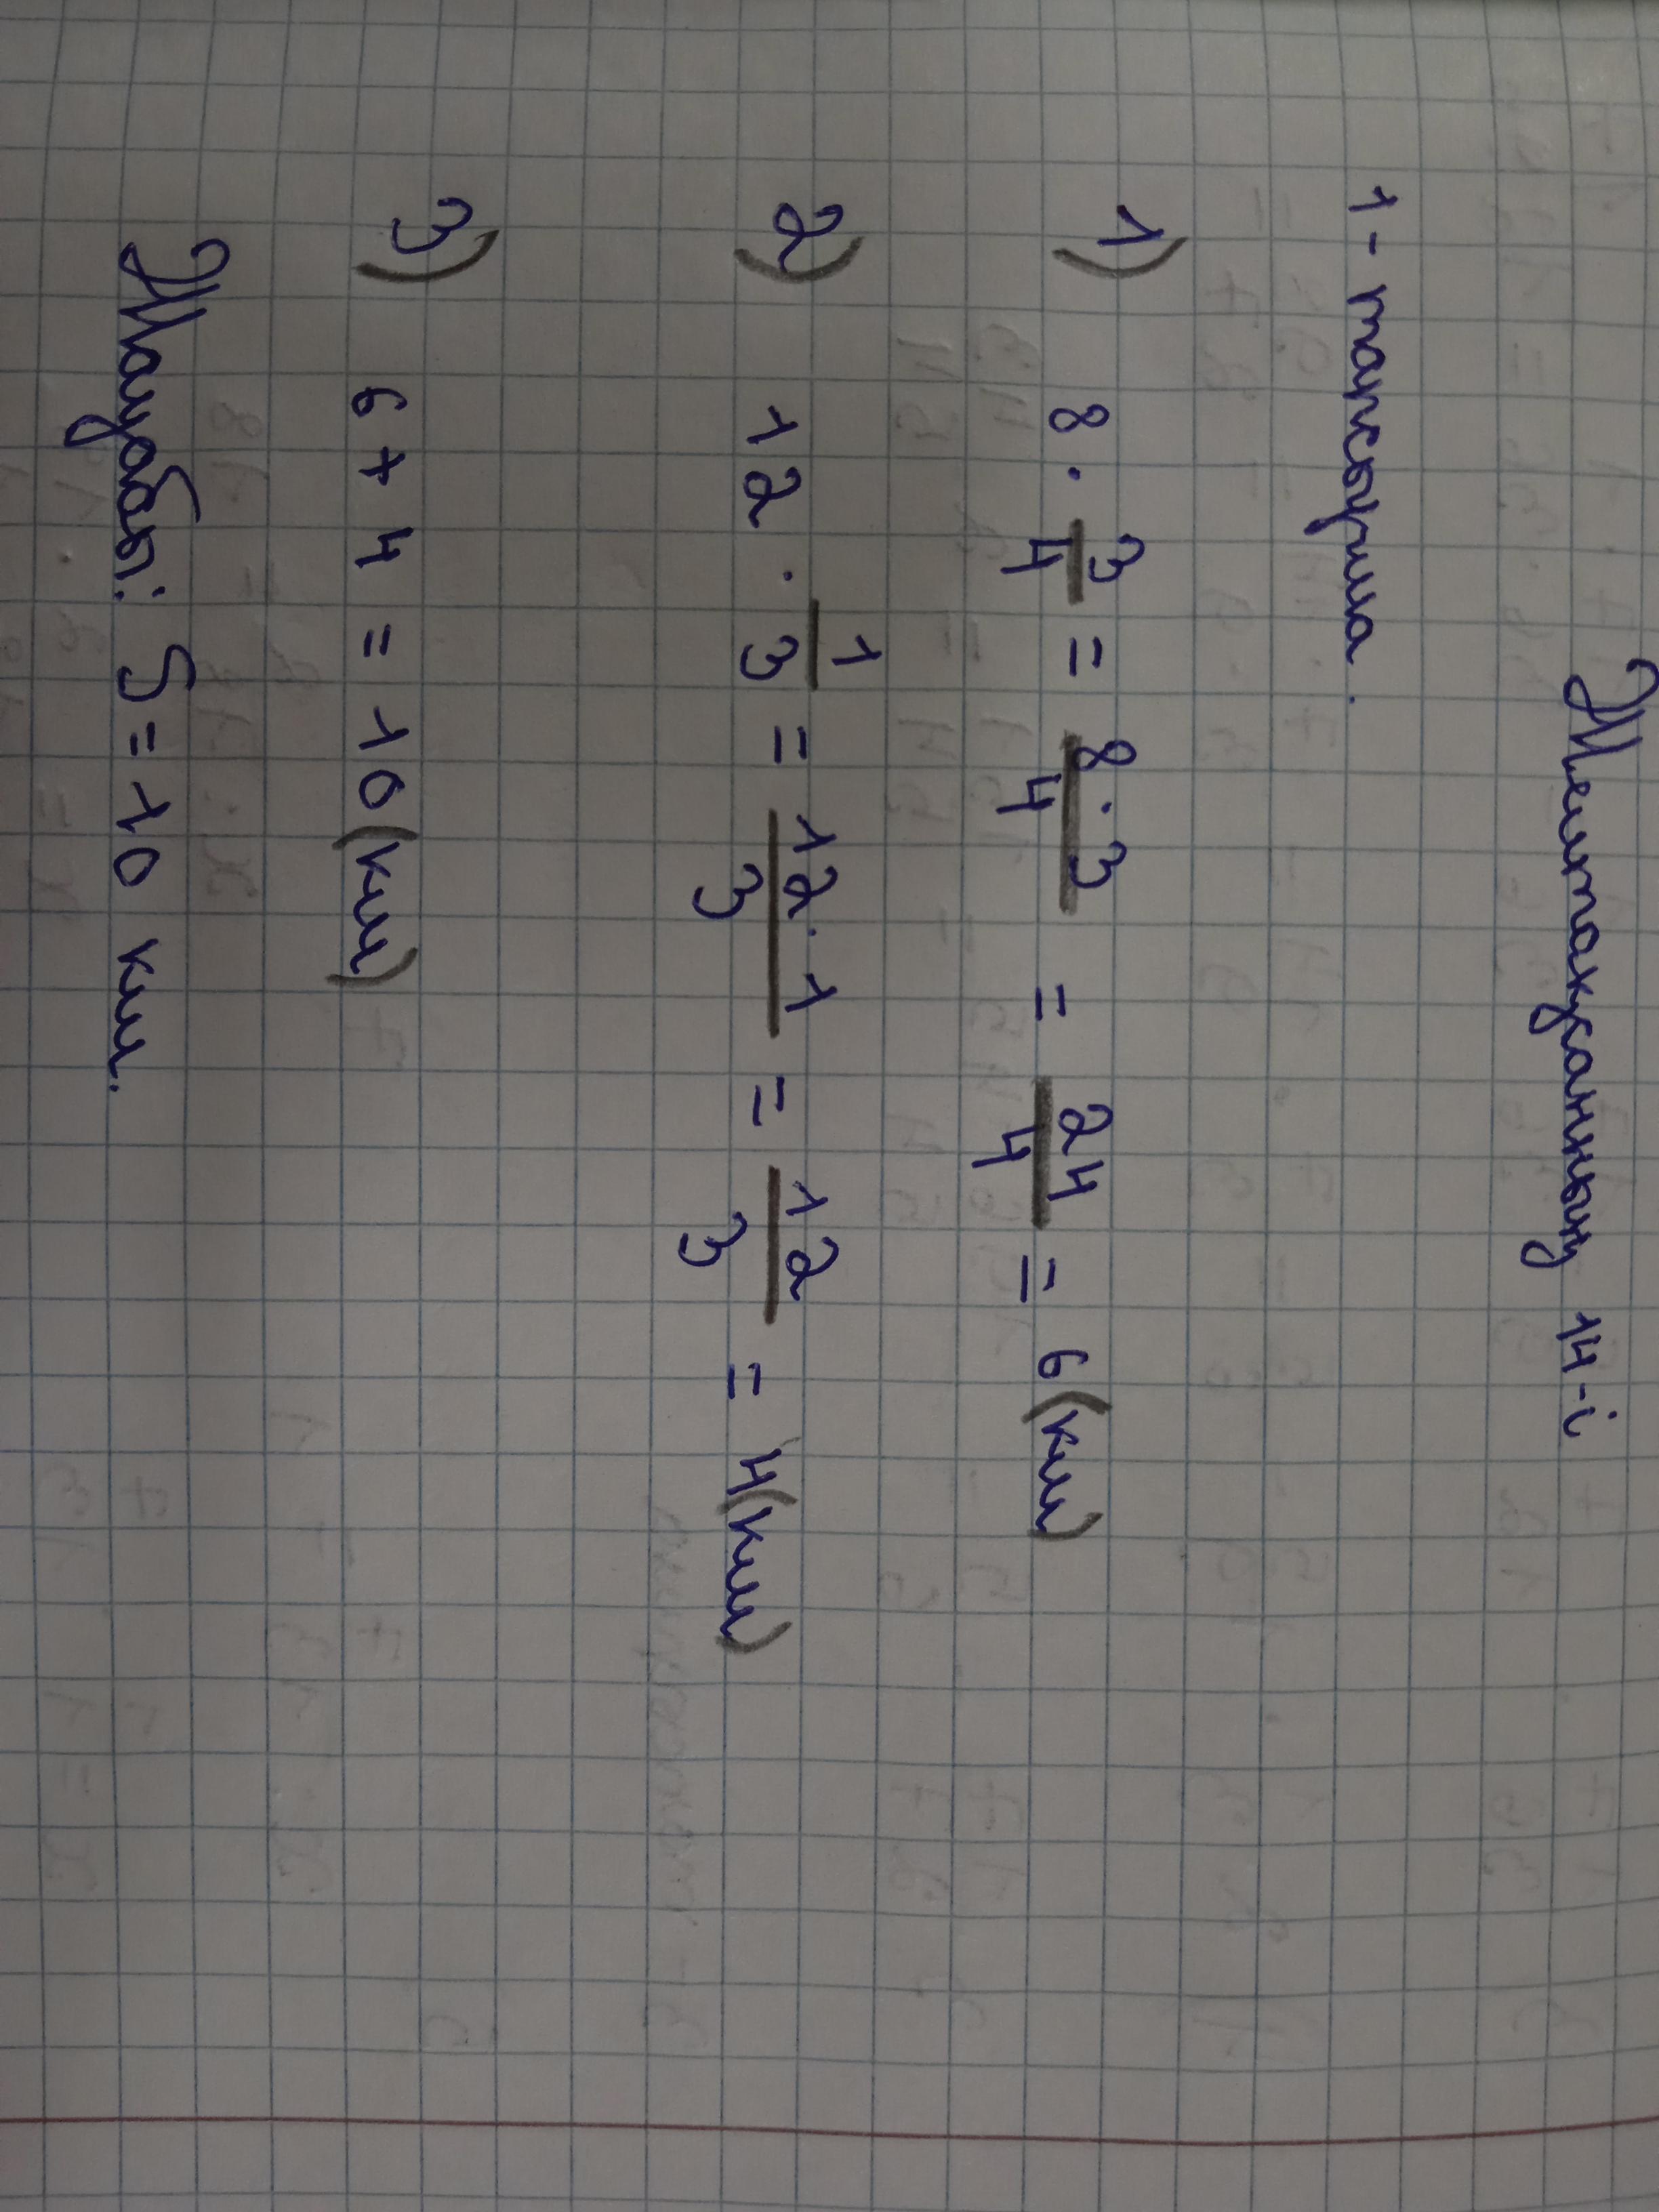 Желтоқсанның 14-і
1-тапсырма.
1) 8 · 3/4 = 8·3/4 = 24/4 = 6 (км)
2) 12 · 1/3 = 12·1/3 = 12/3 = 4 (км)
3) 6 + 4 = 10 (км)
Жауабы: S = 10 км.